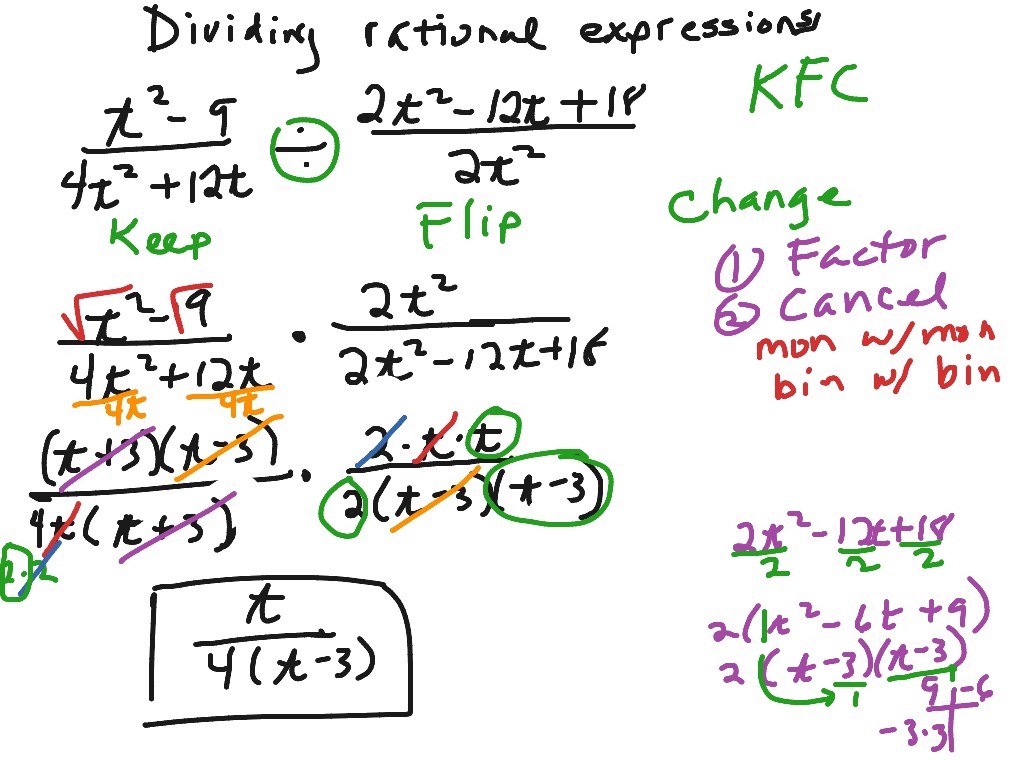 Dividing rational expressions
KFC
t² - 9 / 4t² + 12t ÷ 2t² - 12t + 18 / 2t²
Keep
Flip
Change
① Factor
② Cancel
mon w/ mon
bin w/ bin
√t² - √9 / 4t² + 12t · 2t² / 2t² - 12t + 18
4t 4t
(t + 3)(t - 3) / 4t(t + 3) · 2 · t · t / 2(t - 3)(t - 3)
2 · 2
t / 4(t - 3)
2t² - 12t + 18
2 2 2
2(1t² - 6t + 9)
2(t - 3)(t - 3)
1 1
9 -6
-3 · 3